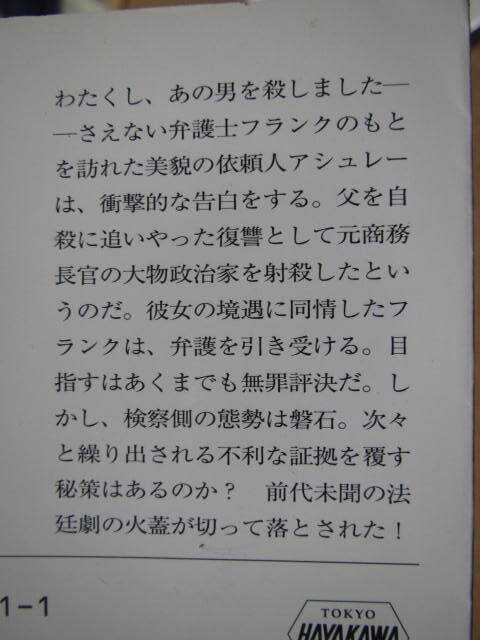 わたくし、あの男を殺しました―
―さえない弁護士フランクのもと
を訪れた美貌の依頼人アシュレー
は、衝撃的な告白をする。父を自
殺に追いやった復讐として元商務
長官の大物政治家を射殺したとい
うのだ。彼女の境遇に同情したフ
ランクは、弁護を引き受ける。目
指すはあくまでも無罪評決だ。し
かし、検察側の態勢は磐石。次々
と繰り出される不利な証拠を覆す
秘策はあるのか？　前代未聞の法
廷劇の火蓋が切って落とされた！
1-1
TOKYO
HAYAKAWA